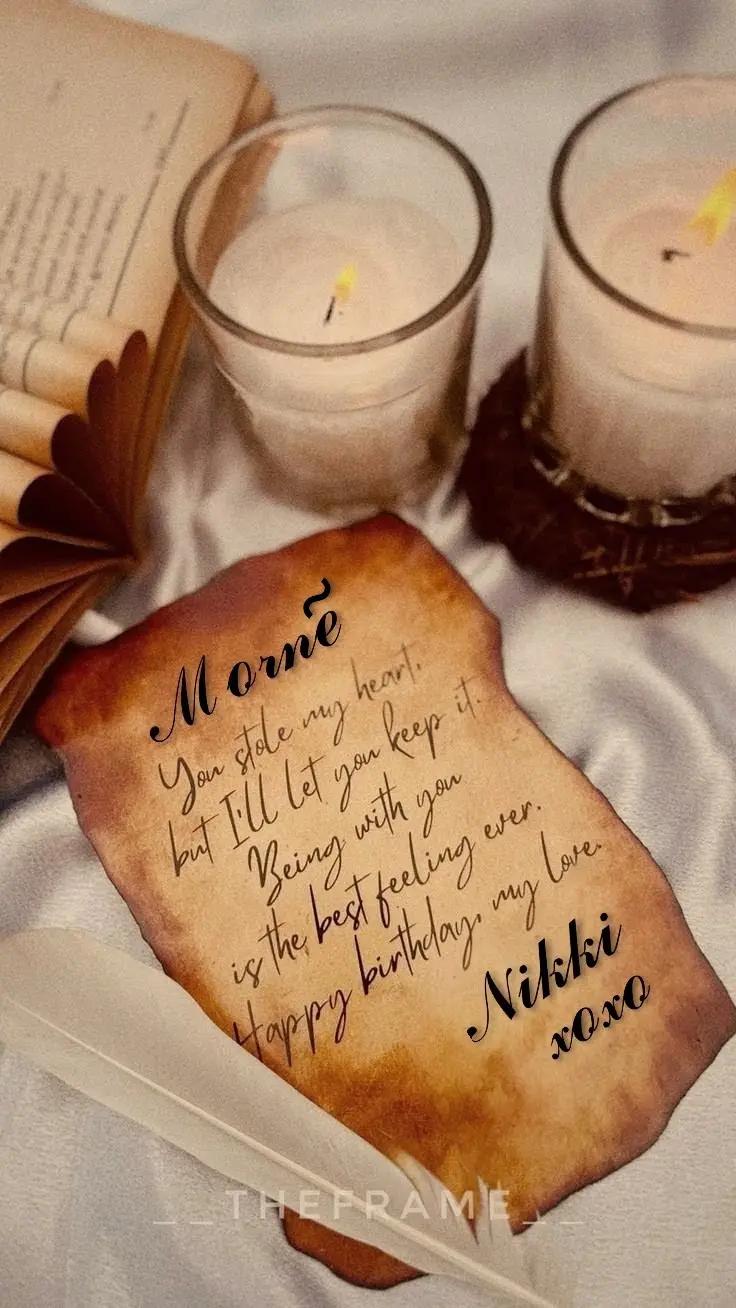 Mornẽ
You stole my heart,
but I'll let you keep it.
Being with you
is the best feeling ever.
Happy birthday, my love.
Nikki
xoxo
__THEFRAME__